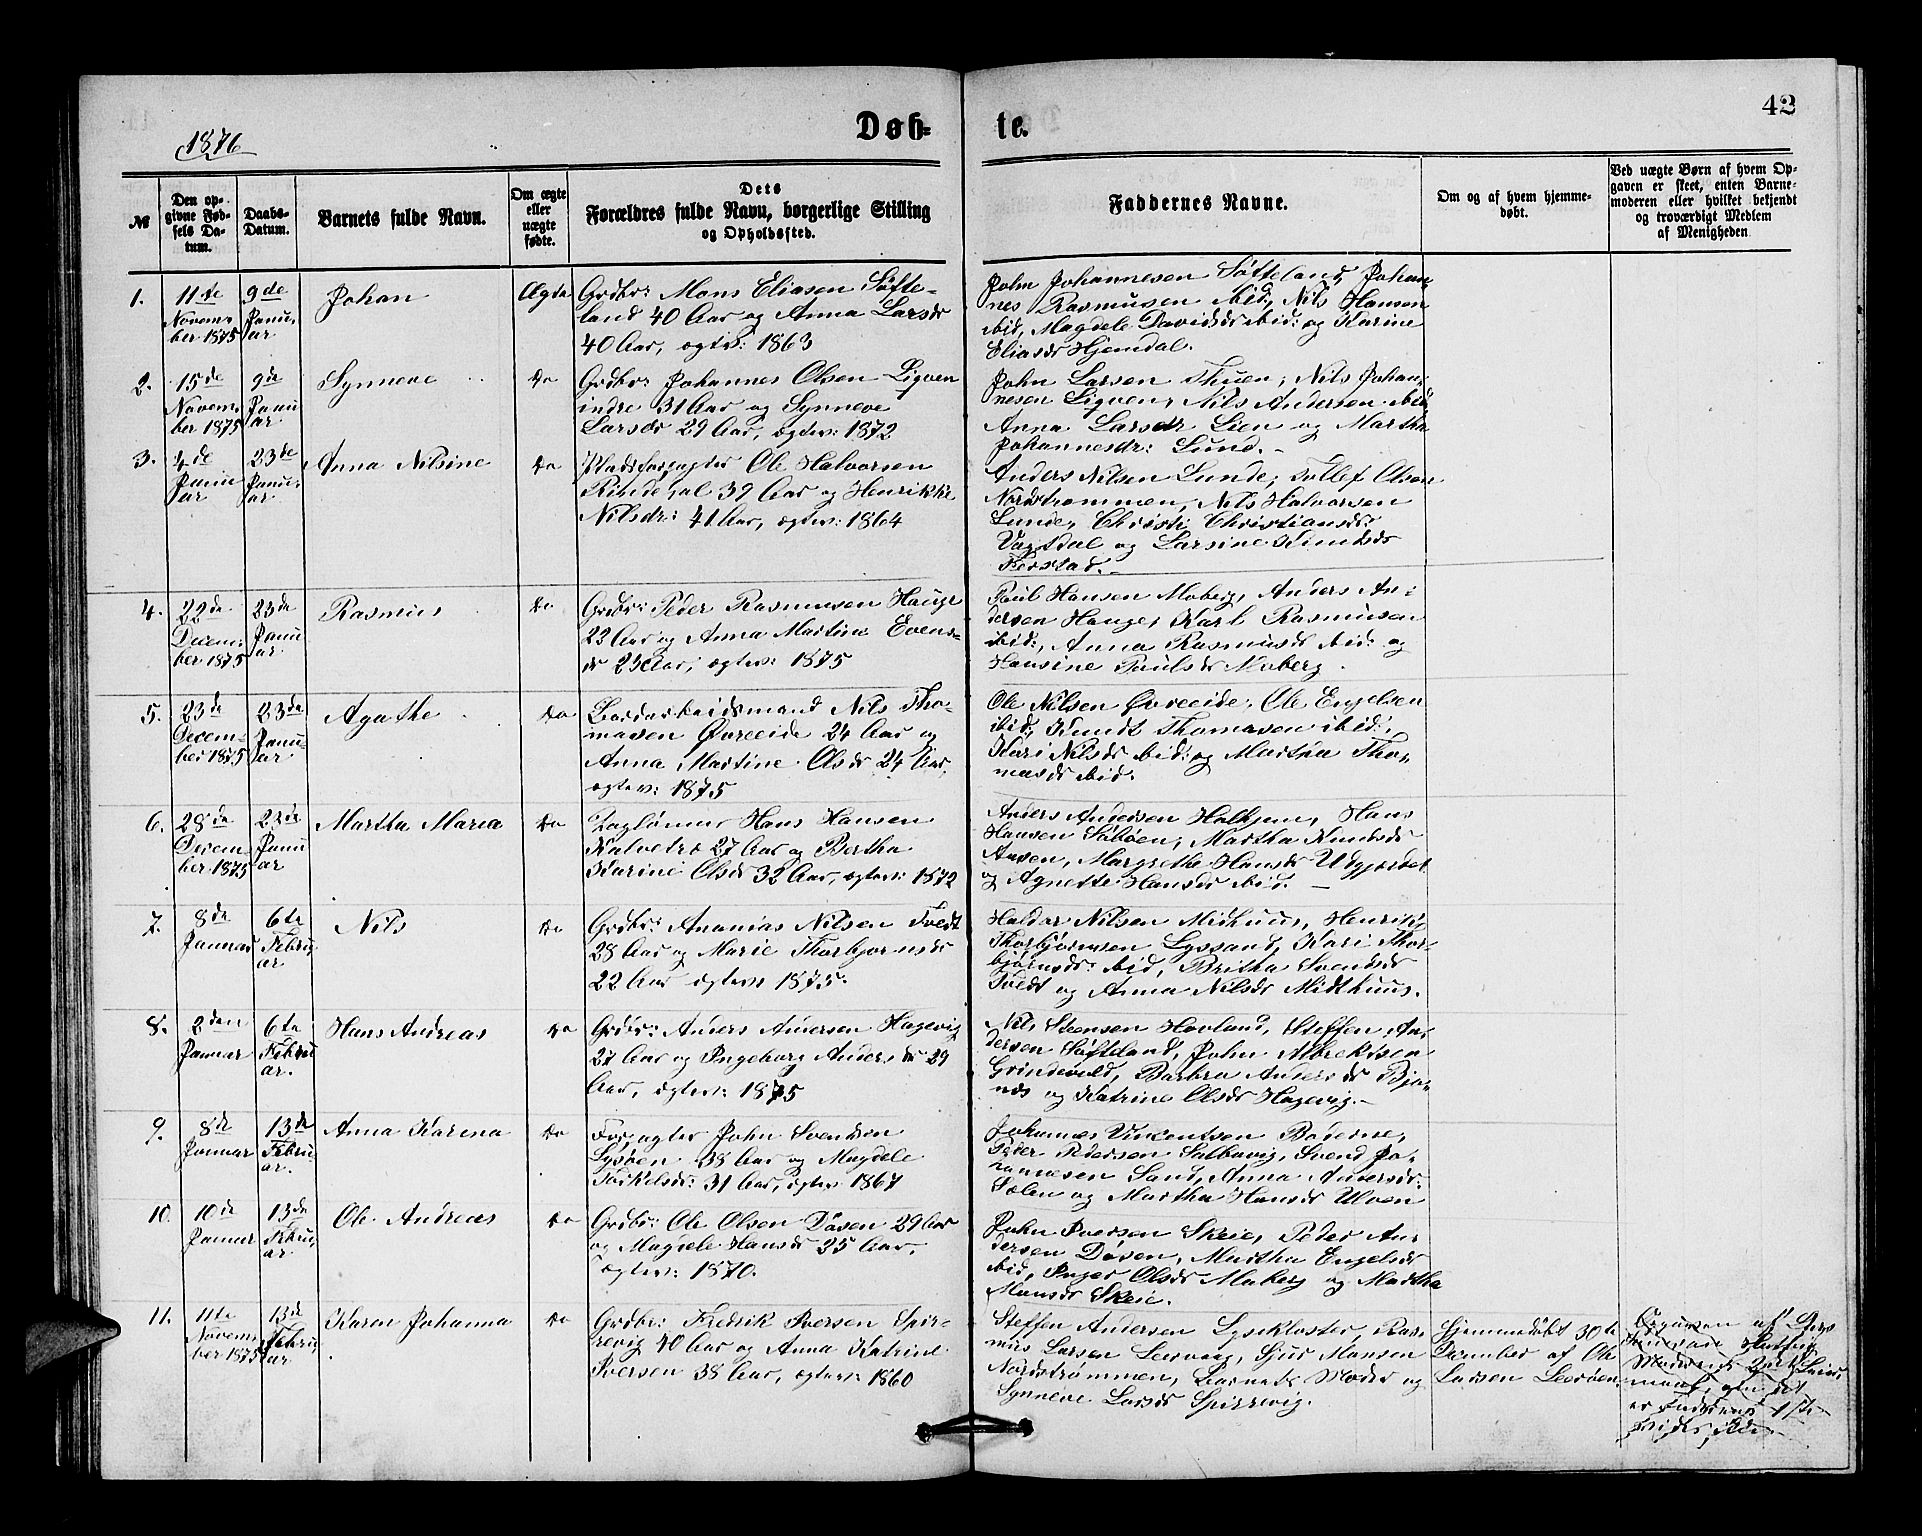 42
1876
Døb-
te.
№
Den op-
givne Fød-
sels Da-
tum.
Daabs-
Datum.
Barnets fulde Navn.
Om ægte
eller
uægte
fødte.
Dets
Forældres fulde Navn, borgerlige Stilling
og Opholdssted.
Faddernes Navne.
Om og af hvem hjemme-
døbt.
Ved uægte Børn af hvem Op-
gaven er skeet, enten Barne-
moderen eller hvilket bekjendt
og troværdigt Medlem
af Menigheden
1.
11te
Novem-
ber 1875
9de
Janu-
ar
Johan
Ægte
Grdbr: Mons Eliasen Søfte-
land 40 Aar og Anna Larsdr
40 Aar, ægtev: 1863
John Johannesen Søfteland, Johan-
nes Rasmusen ibid, Nils Hansen
ibid, Magdele Davidsdr ibid: og Karine
Eliasdr Hjemdal.
2.
15de
Novem-
ber 1875
9de
Janu-
ar
Synneve
Do
Grdbr: Johannes Olsen Ligven
indre 31 Aar og Synneve
Larsdr 29 Aar, ægtev: 1872
John Larsen Thuen, Nils Johan-
nesen Ligven, Nils Andersen ibid,
Anna Larsdr Lien og Martha
Johannesdr: Lund.-
3.
4de
Janu-
ar
23de
Janu-
ar
Anna Nilsine
Do
Pladsforpagter Ole Halvorsen
Rindedal 39 Aar og Henrikke
Nilsdr: 41 Aar, ægtev: 1864
Anders Nilsen Lunde, Tollef Olsen
Nordstrømmen, Nils Halvorsen
Lunde, Christi Christiansdr
og Larsine Knudsdr
4.
22de
Decem-
ber 1875
23de
Janu-
ar
Rasmus
Do
Grdbr: Peder Rasmusen Hauge
23 Aar og Anna Martine Evens-
dr 23 Aar, ægtev: 1875
Paul Hansen Moberg, Anders An-
dersen Hauge, Karl Rasmusen
ibid:, Anna Rasmusdr ibid: og
Hansine Paulsdr Moberg.
5.
23de
Decem-
ber 1875
23de
Janu-
ar
Agathe
Do
Jordarbeidsmand Nils Tho-
masen Øvreeide 24 Aar og
Anna Martine Olsdr 24 Aar,
ægtev: 1875
Ole Nilsen Øvreeide, Ole Engelsen
ibid:, Knudt Thomasen ibid:,
Kari Nilsdr ibid: og Martha Tho-
masdr ibid.
6.
28de
Decem-
ber 1875
23de
Janu-
ar
Martha Maria
Do
Daglønner Hans Hansen
Kalvetræ 27 Aar og Bertha
Karine Olsdr 32 Aar, ægtev: 1872
Anders Andersen Halhjem, Hans
Hansen Søbøen, Martha Knudsdr
Aasen, Margrethe Hansdr Udgjordet
og Agnette Hansdr ibid. -
7.
8de
Januar
6te
Febru-
ar
Nils
Do
Grdbr: Ananias Nilsen Tvedt
28 Aar og Marie Thorbjørnsdr
22 Aar ægtev: 1875.
Haldor Nilsen Midthuus, Henrik
Thorbjørnsen Lyssand, Kari Thor-
bjørnsdr: ibid, Britha Svendsdr
Tvedt og Anna Nilsdr Midthuus.
8.
2den
Januar
6te
Febru-
ar.
Hans Andreas
Do
Grdbr: Anders Andersen Hagevig
27 Aar og Ingeborg Andersdr 29
Aar, ægtev: 1875
Nils Steensen Hovland, Steffen An-
dersen Søfteland, John Albrektsen
Grindevold, Barbra Andersdr Bjø-
næs og Katrine Olsdr Hagevig.-
9.
8de
Januar
13de
Febru-
ar.
Anna Karena
Do
Forpagter John Svendsen
Lysøen 38 Aar og Magdele
Torkelsdr: 31 Aar, ægtev 1867
Johannes Vincentsen Baderne,
Peder Pedersen Salbuvig, Svend Jo-
hannesen Sand, Anna Andersdr:
Sælen og Martha Hansdr Ulven
10.
10de
Januar
13de
Febru-
ar
Ole Andreas
Do
Grdbr: Ole Olsen Døsen 29 Aar
og Magdele Hansdr 25 Aar,
ægtev: 1870.
John Iversen Skeie, Peder An-
dersen Døsen, Martha Engelsdr
ibid, Inger Olsdr Moberg og Martha
Monsdr Skeie.
11.
11te
Novem-
ber 1875
13de
Febru-
ar
Karen Johanna
Do
Grdbr: Fredrik Iversen Spir-
revig 40 Aar og Anna Katrine
Iversen 38 Aar, ægtev: 1860
Steffen Andersen Lysekloster, Ras-
mus Larsen Leervaag, Sjur Monsen
Nordstrømmen, Barnets Moder og
Synneve Larsdr Spirrevig.
Hjemmedøbt 30te
December af Ole
Larsen Leerøen.